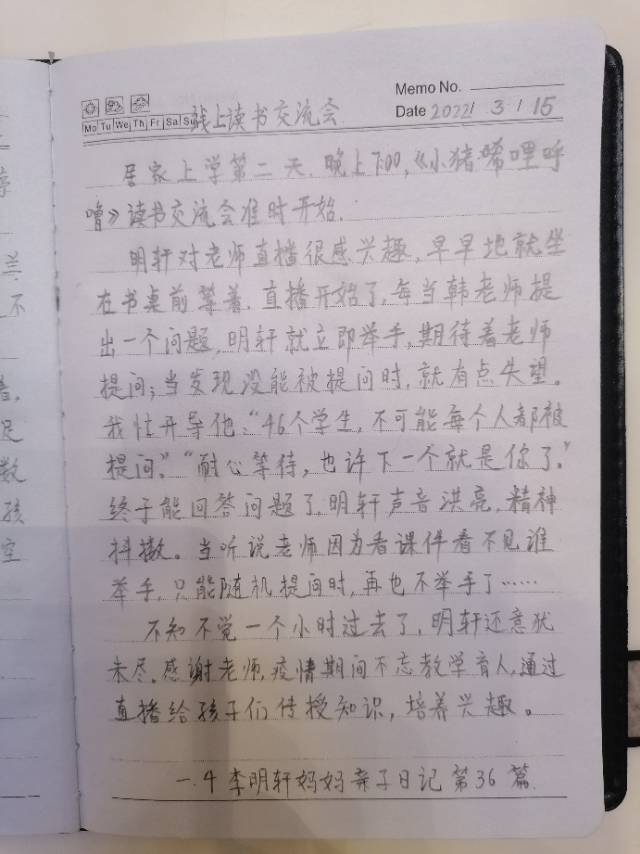 Memo No.
Mo Tu We Th Fr Sa Su 线上读书交流会 Date 2022/3/15
居家上学第二天,晚上7:00,《小猪唏哩呼
噜》读书交流会准时开始.
明轩对老师直播很感兴趣,早早地就坐
在书桌前等着,直播开始了,每当韩老师提
出一个问题,明轩就立即举手,期待着老师
提问;当发现没能被提问时,就有点失望。
我忙开导他,“46个学生,不可能每个人都被
提问”,“耐心等待,也许下一个就是你了。”
终于能回答问题了,明轩声音洪亮,精神
抖擞。当听说老师因为看课件看不见谁
举手,只能随机提问时,再也不举手了……
不知不觉一个小时过去了,明轩还意犹
未尽。感谢老师,疫情期间不忘教学育人,通过
直播给孩子们传授知识,培养兴趣。
一.4 李明轩妈妈亲子日记第36篇.
兰
不
足
数
孩
空